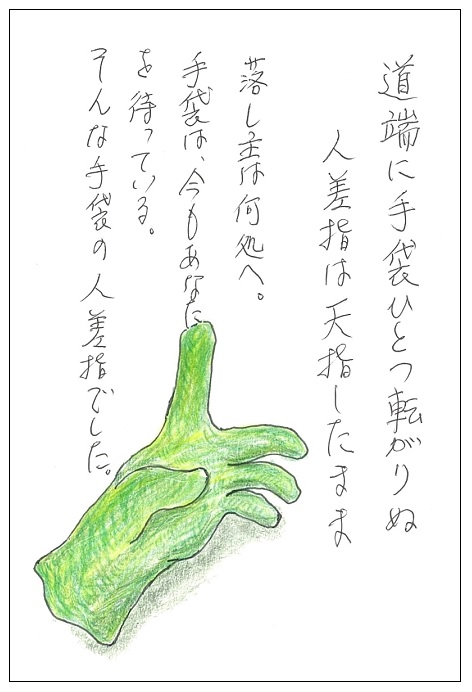 道端に手袋ひとつ転がりぬ
人差指は天指したまま
落し主は何処へ。
手袋は、今もあなた
を待っている。
そんな手袋の人差指でした。